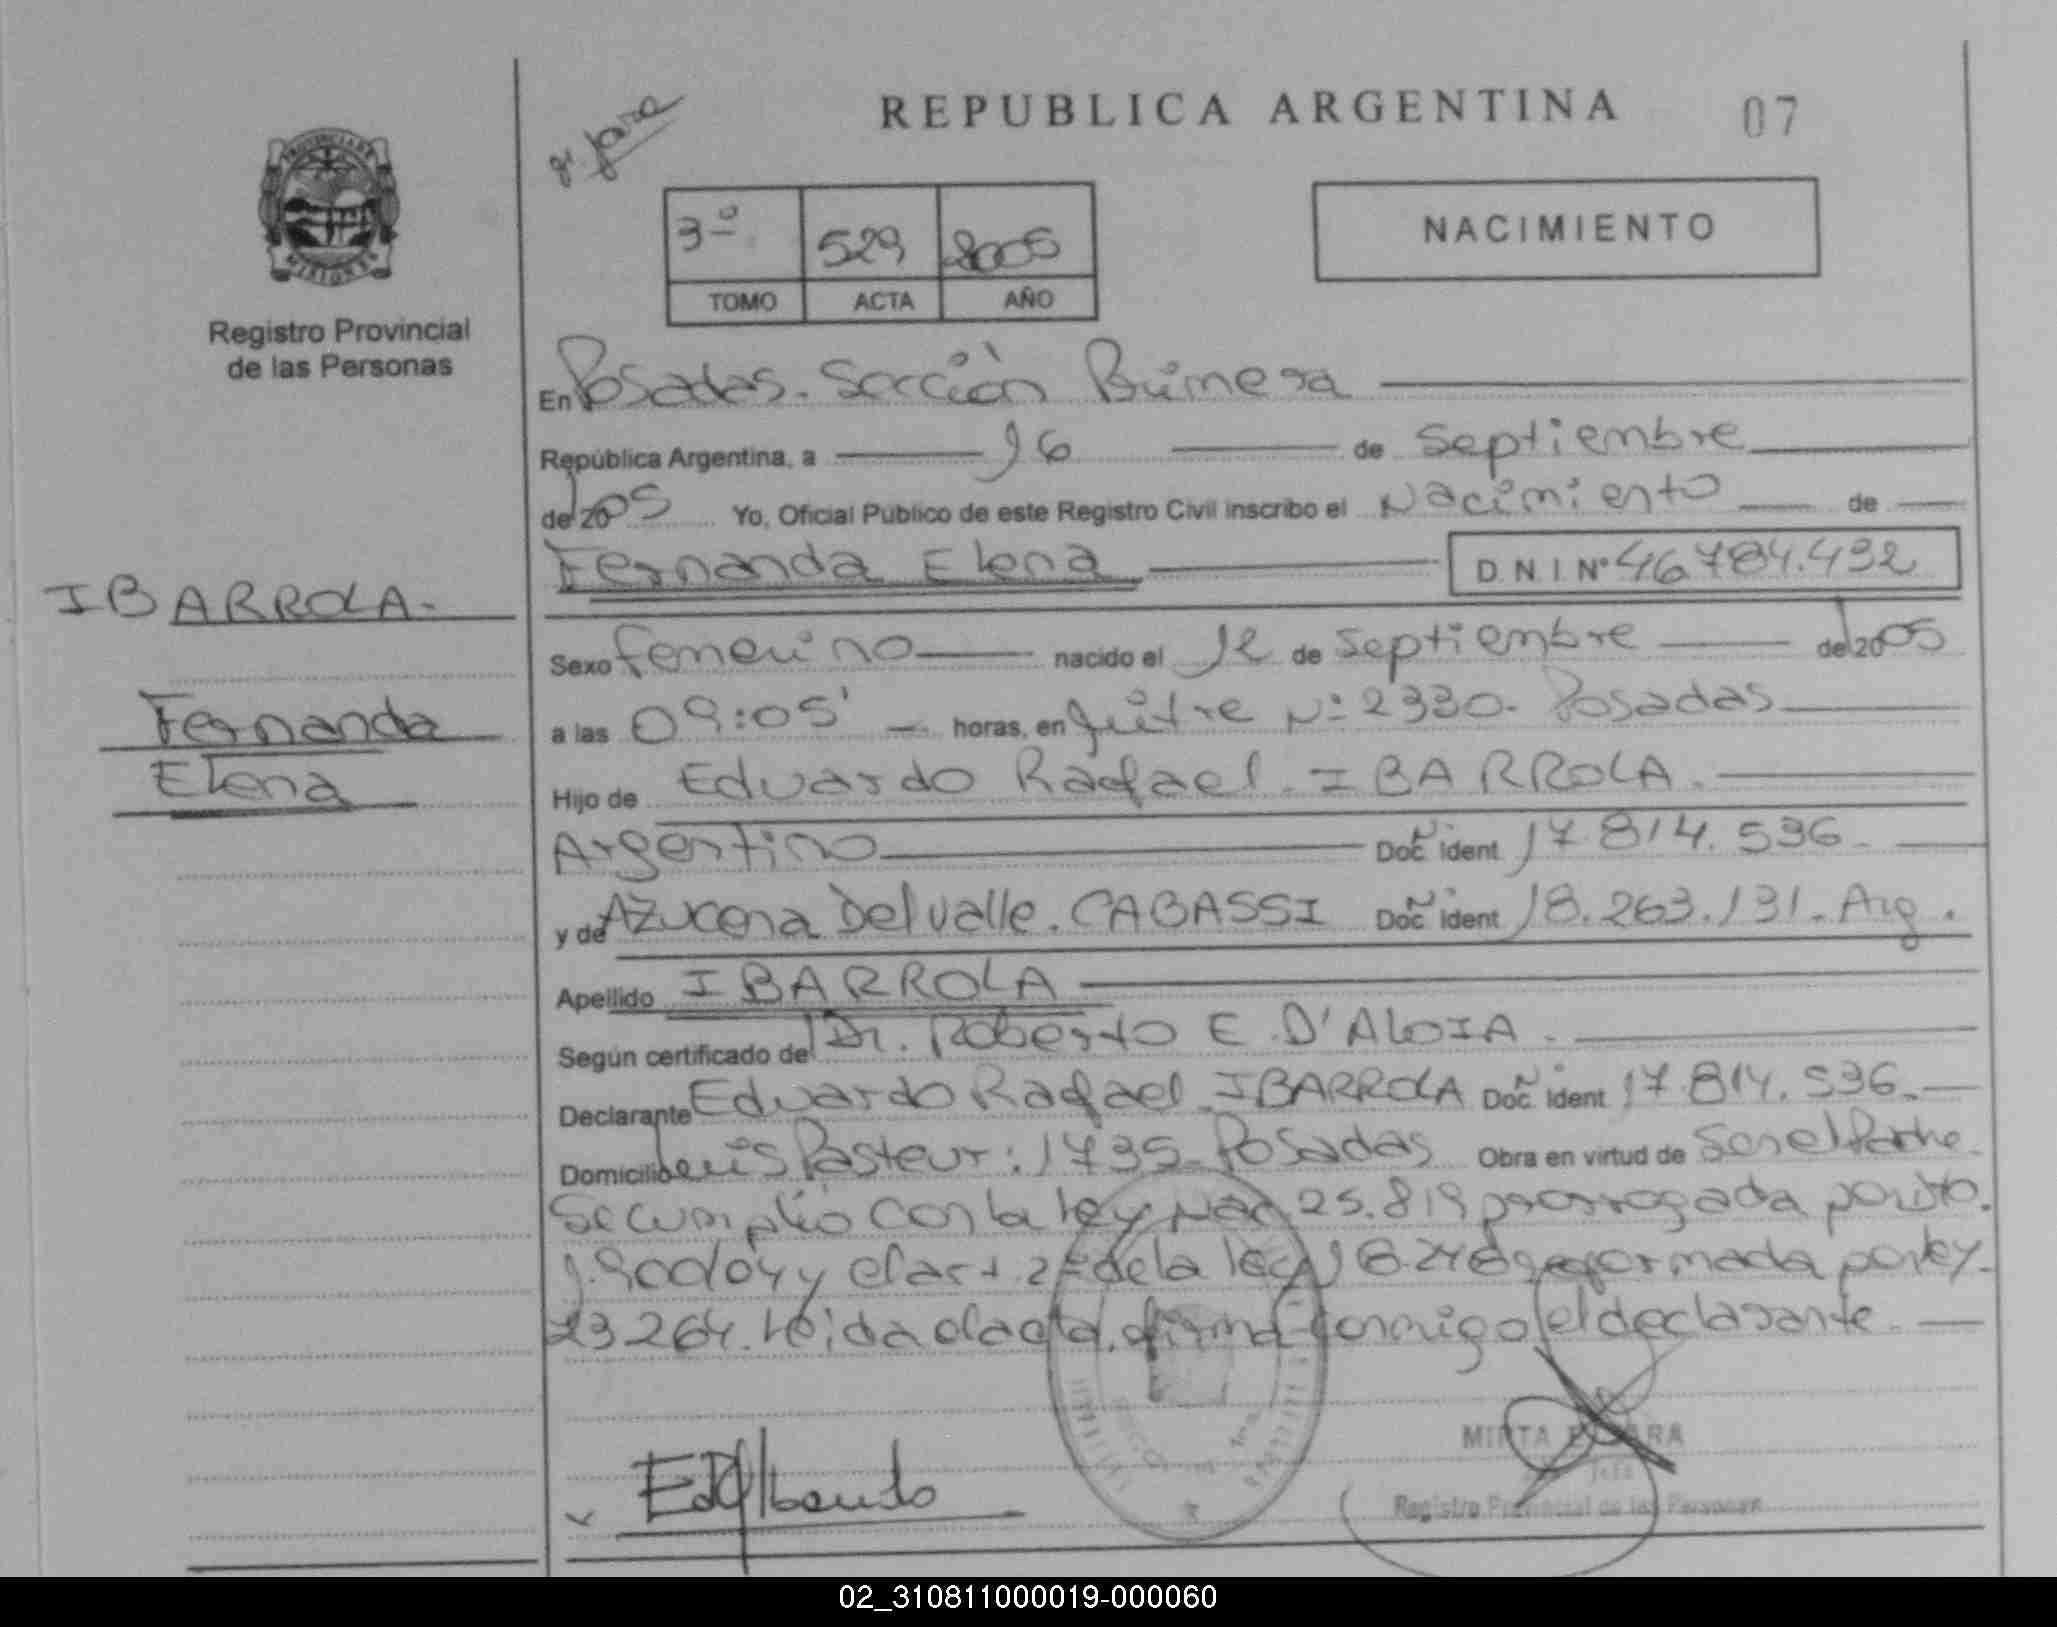 REPUBLICA ARGENTINA 07
PROVINCIA DE
MISIONES
Registro Provincial
de las Personas
3º 529 2005
TOMO ACTA AÑO
NACIMIENTO
En Posadas. Sección Primera
República Argentina, a 16 de Septiembre
del 2005 Yo, Oficial Público de este Registro Civil inscribo el Nacimiento de
Fernanda Elena D.N.I. Nº 46.784.492
IBARROLA.
Fernanda
Elena
Sexo femenino nacido el 12 de Septiembre del 2005
a las 09:05' horas, en Mitre Nº 2330. Posadas
Hijo de Eduardo Rafael. IBARROLA.
Argentino Doc. ident 17.814.536.
y de Azucena Del Valle. CABASSI Doc. ident 18.263.131. Arg.
Apellido IBARROLA
Según certificado del Dr. Roberto E. D'ALOIA.
Declarante Eduardo Rafael IBARROLA Doc. ident 17.814.536.
Domicilio Luis Pasteur: 1735. Posadas Obra en virtud de Ser el Padre.
Se cumplió con la ley Nac 25.819 prorrogada por Dto.
1.900/04 y el art. 2º de la ley 18.248 reformada por ley.
23264. Leida el acta, firma conmigo el declarante.
MIRTA
Jefa
Registro Provincial de las Personas
02_310811000019-000060